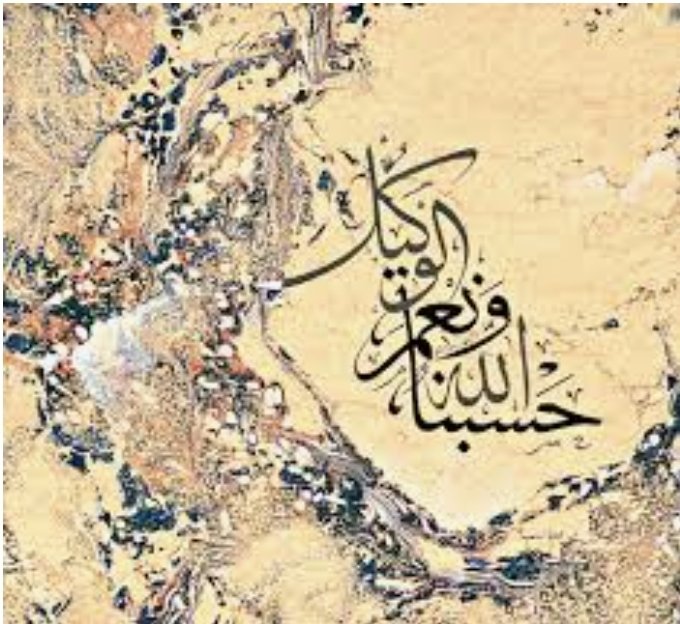 حَسْبُنَا اللهُ
وَنِعْمَ
الْوَكِيلُ